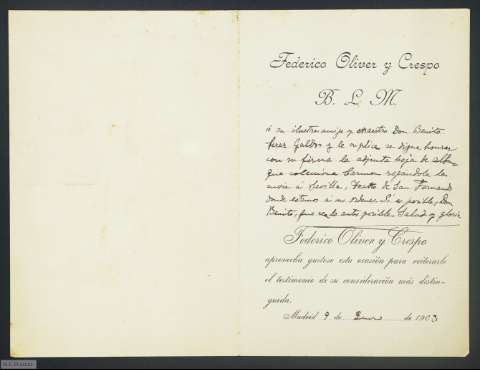 Federico Oliver y Crespo
B. L. M.
á su ilustre amigo y maestro Don Benito
Perez Galdós y le suplica se digne honrar
con su firma la adjunta hoja de album
que colecciona Carmen rogándole la
envie á Sevilla, Teatro de San Fernando
donde estamos á su orden. Si es posible, Don
Benito, que sea lo antes posible. Salud y gloria
Federico Oliver y Crespo
aprovecha gustoso esta ocasión para reiterarle
el testimonio de su consideración más distin-
guida.
Madrid 9 de Enero de 1903